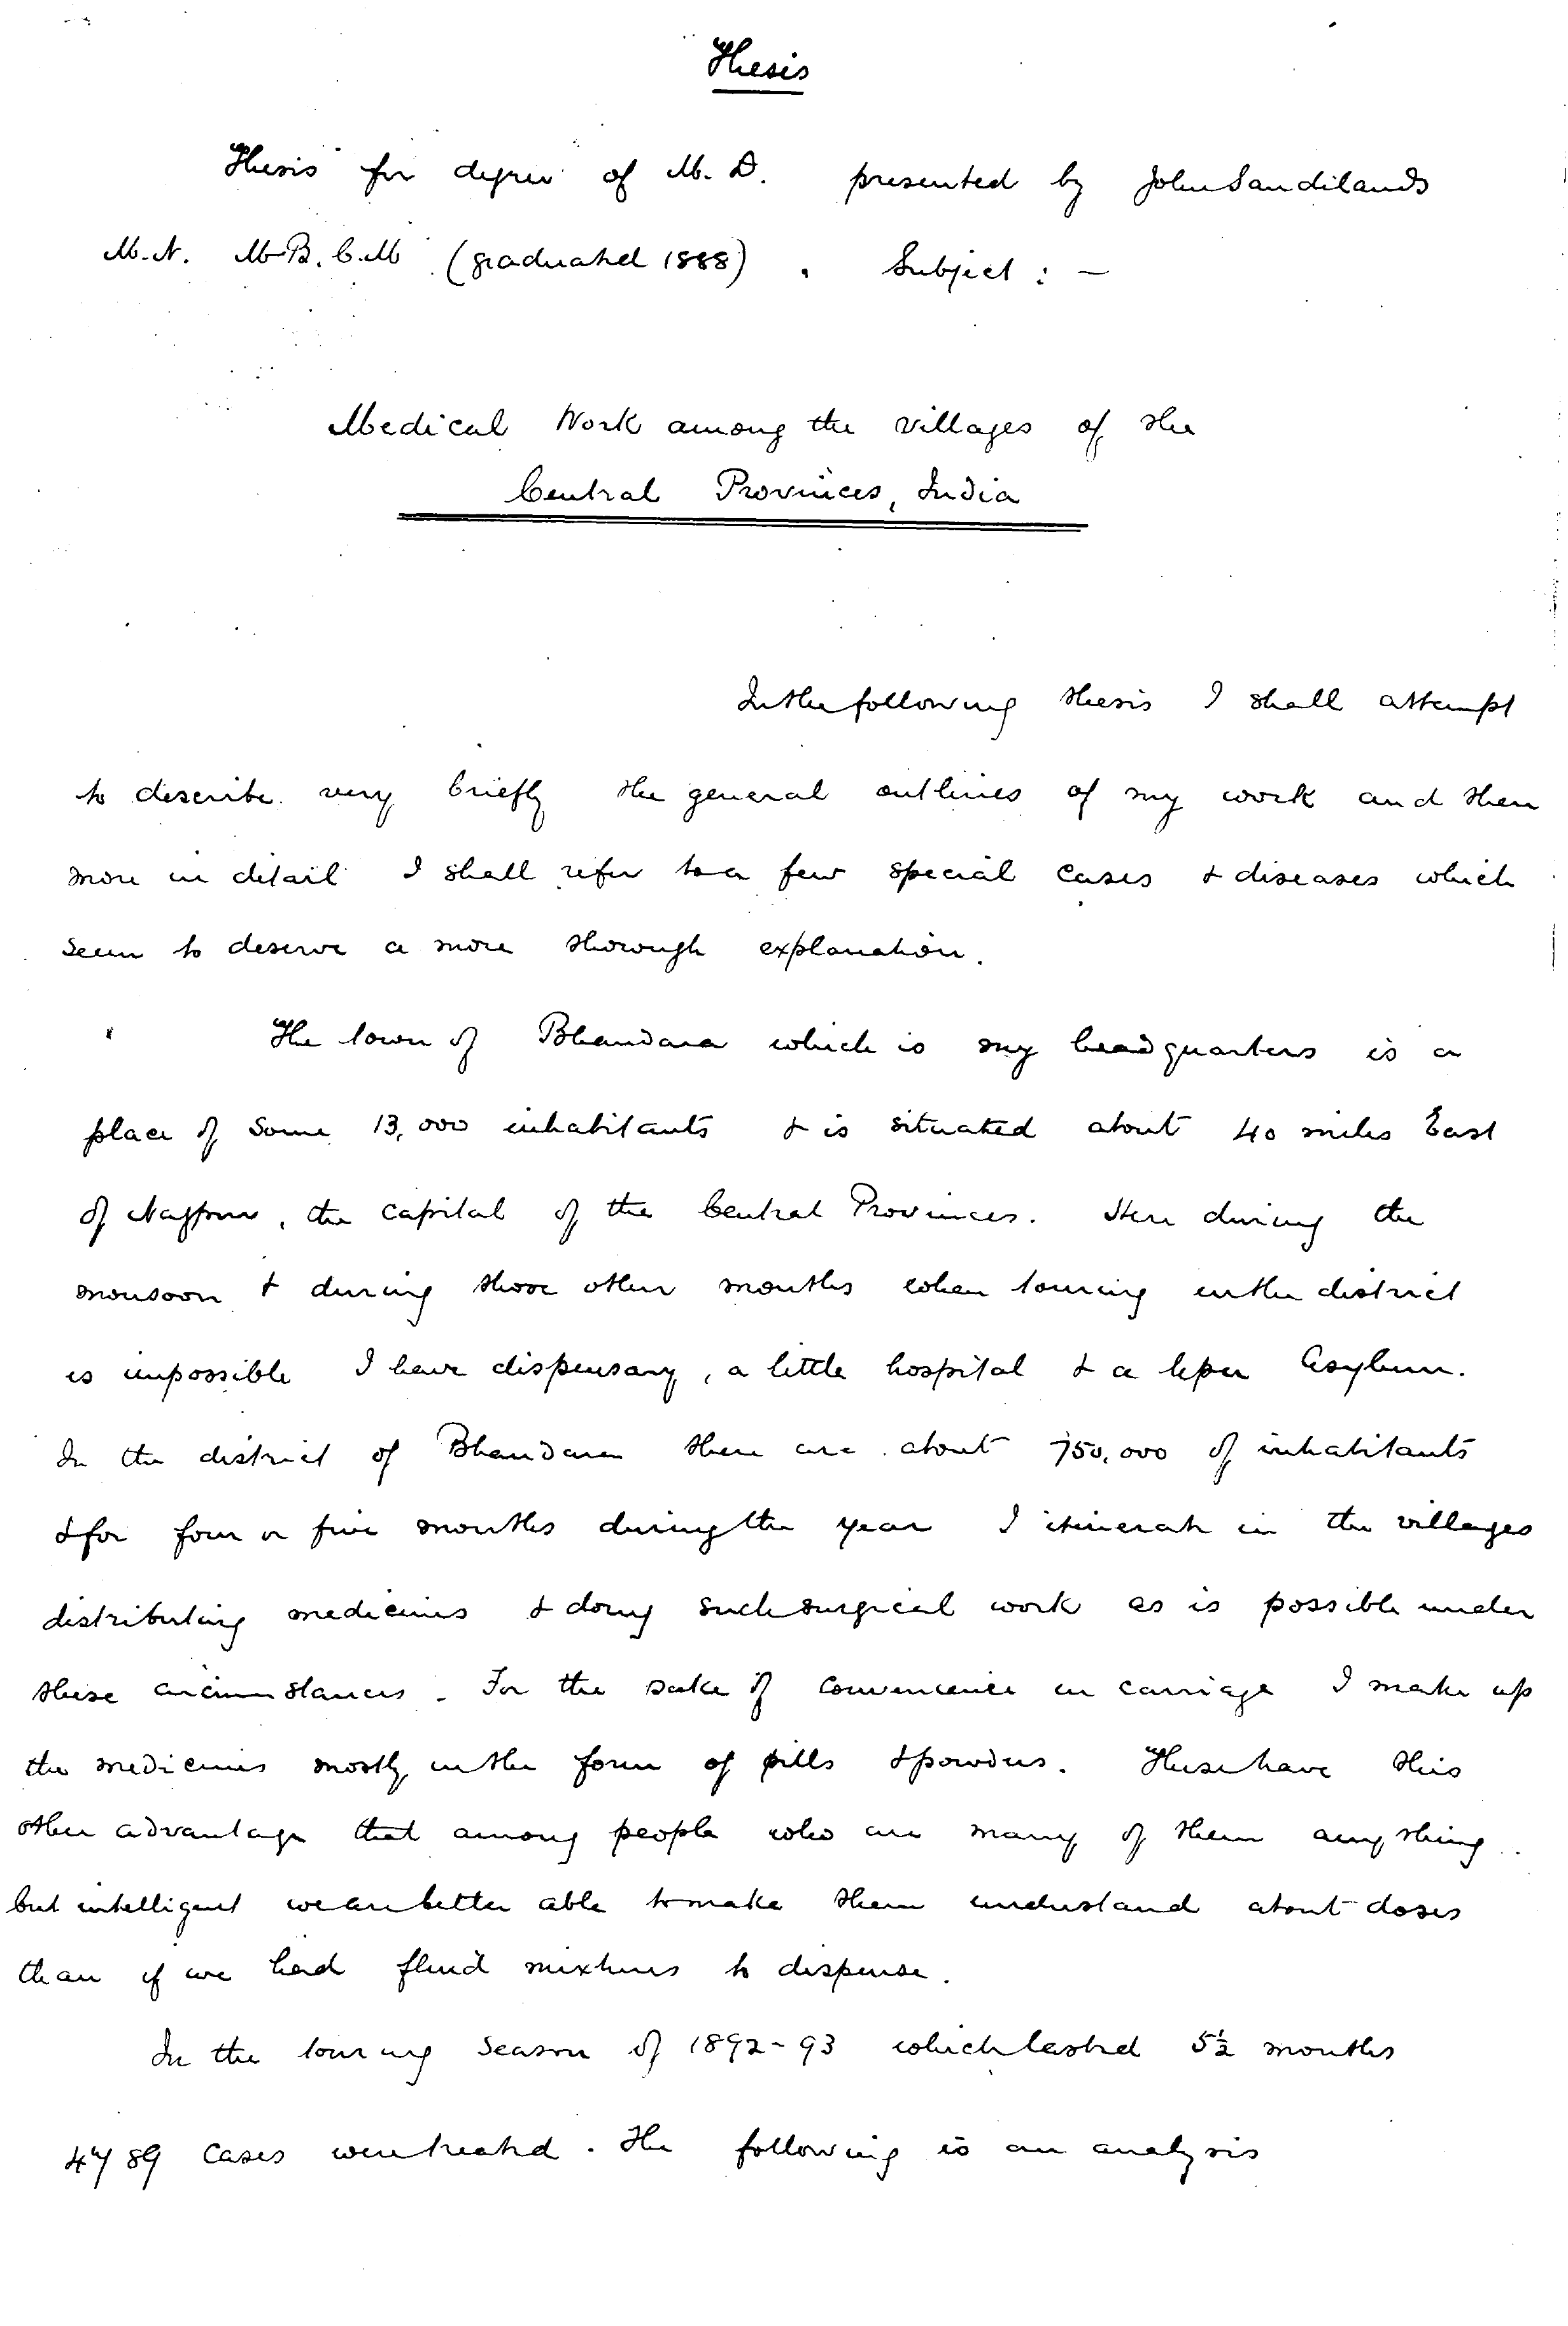 Thesis
Thesis for degree of M. D. presented by John Sandilands
M.A. M.B. C.M (graduated 1888). Subject : —
Medical Work among the villages of the
Central Provinces, India
In the following thesis I shall attempt
to describe very briefly the general outlines of my work and then
more in detail I shall refer to a few special cases & diseases which
seem to deserve a more thorough explanation.
The town of Bhandara which is my headquarters is a
place of some 13,000 inhabitants & is situated about 40 miles East
of Nagpur, the capital of the Central Provinces. Here during the
monsoon & during those other months when touring in the district
is impossible I have dispensary, a little hospital & a leper Asylum.
In the district of Bhandara there are about 750,000 of inhabitants
& for four or five months during the year I itinerate in the villages
distributing medicines & doing such surgical work as is possible under
these circumstances. For the sake of convenience in carriage I make up
the medicines mostly in the form of pills & powders. These have this
other advantage that among people who are many of them anything
but intelligent we are better able to make them understand about doses
than if we had fluid mixtures to dispense.
In the touring season of 1892-93 which lasted 5½ months
4789 cases were treated. The following is an analysis